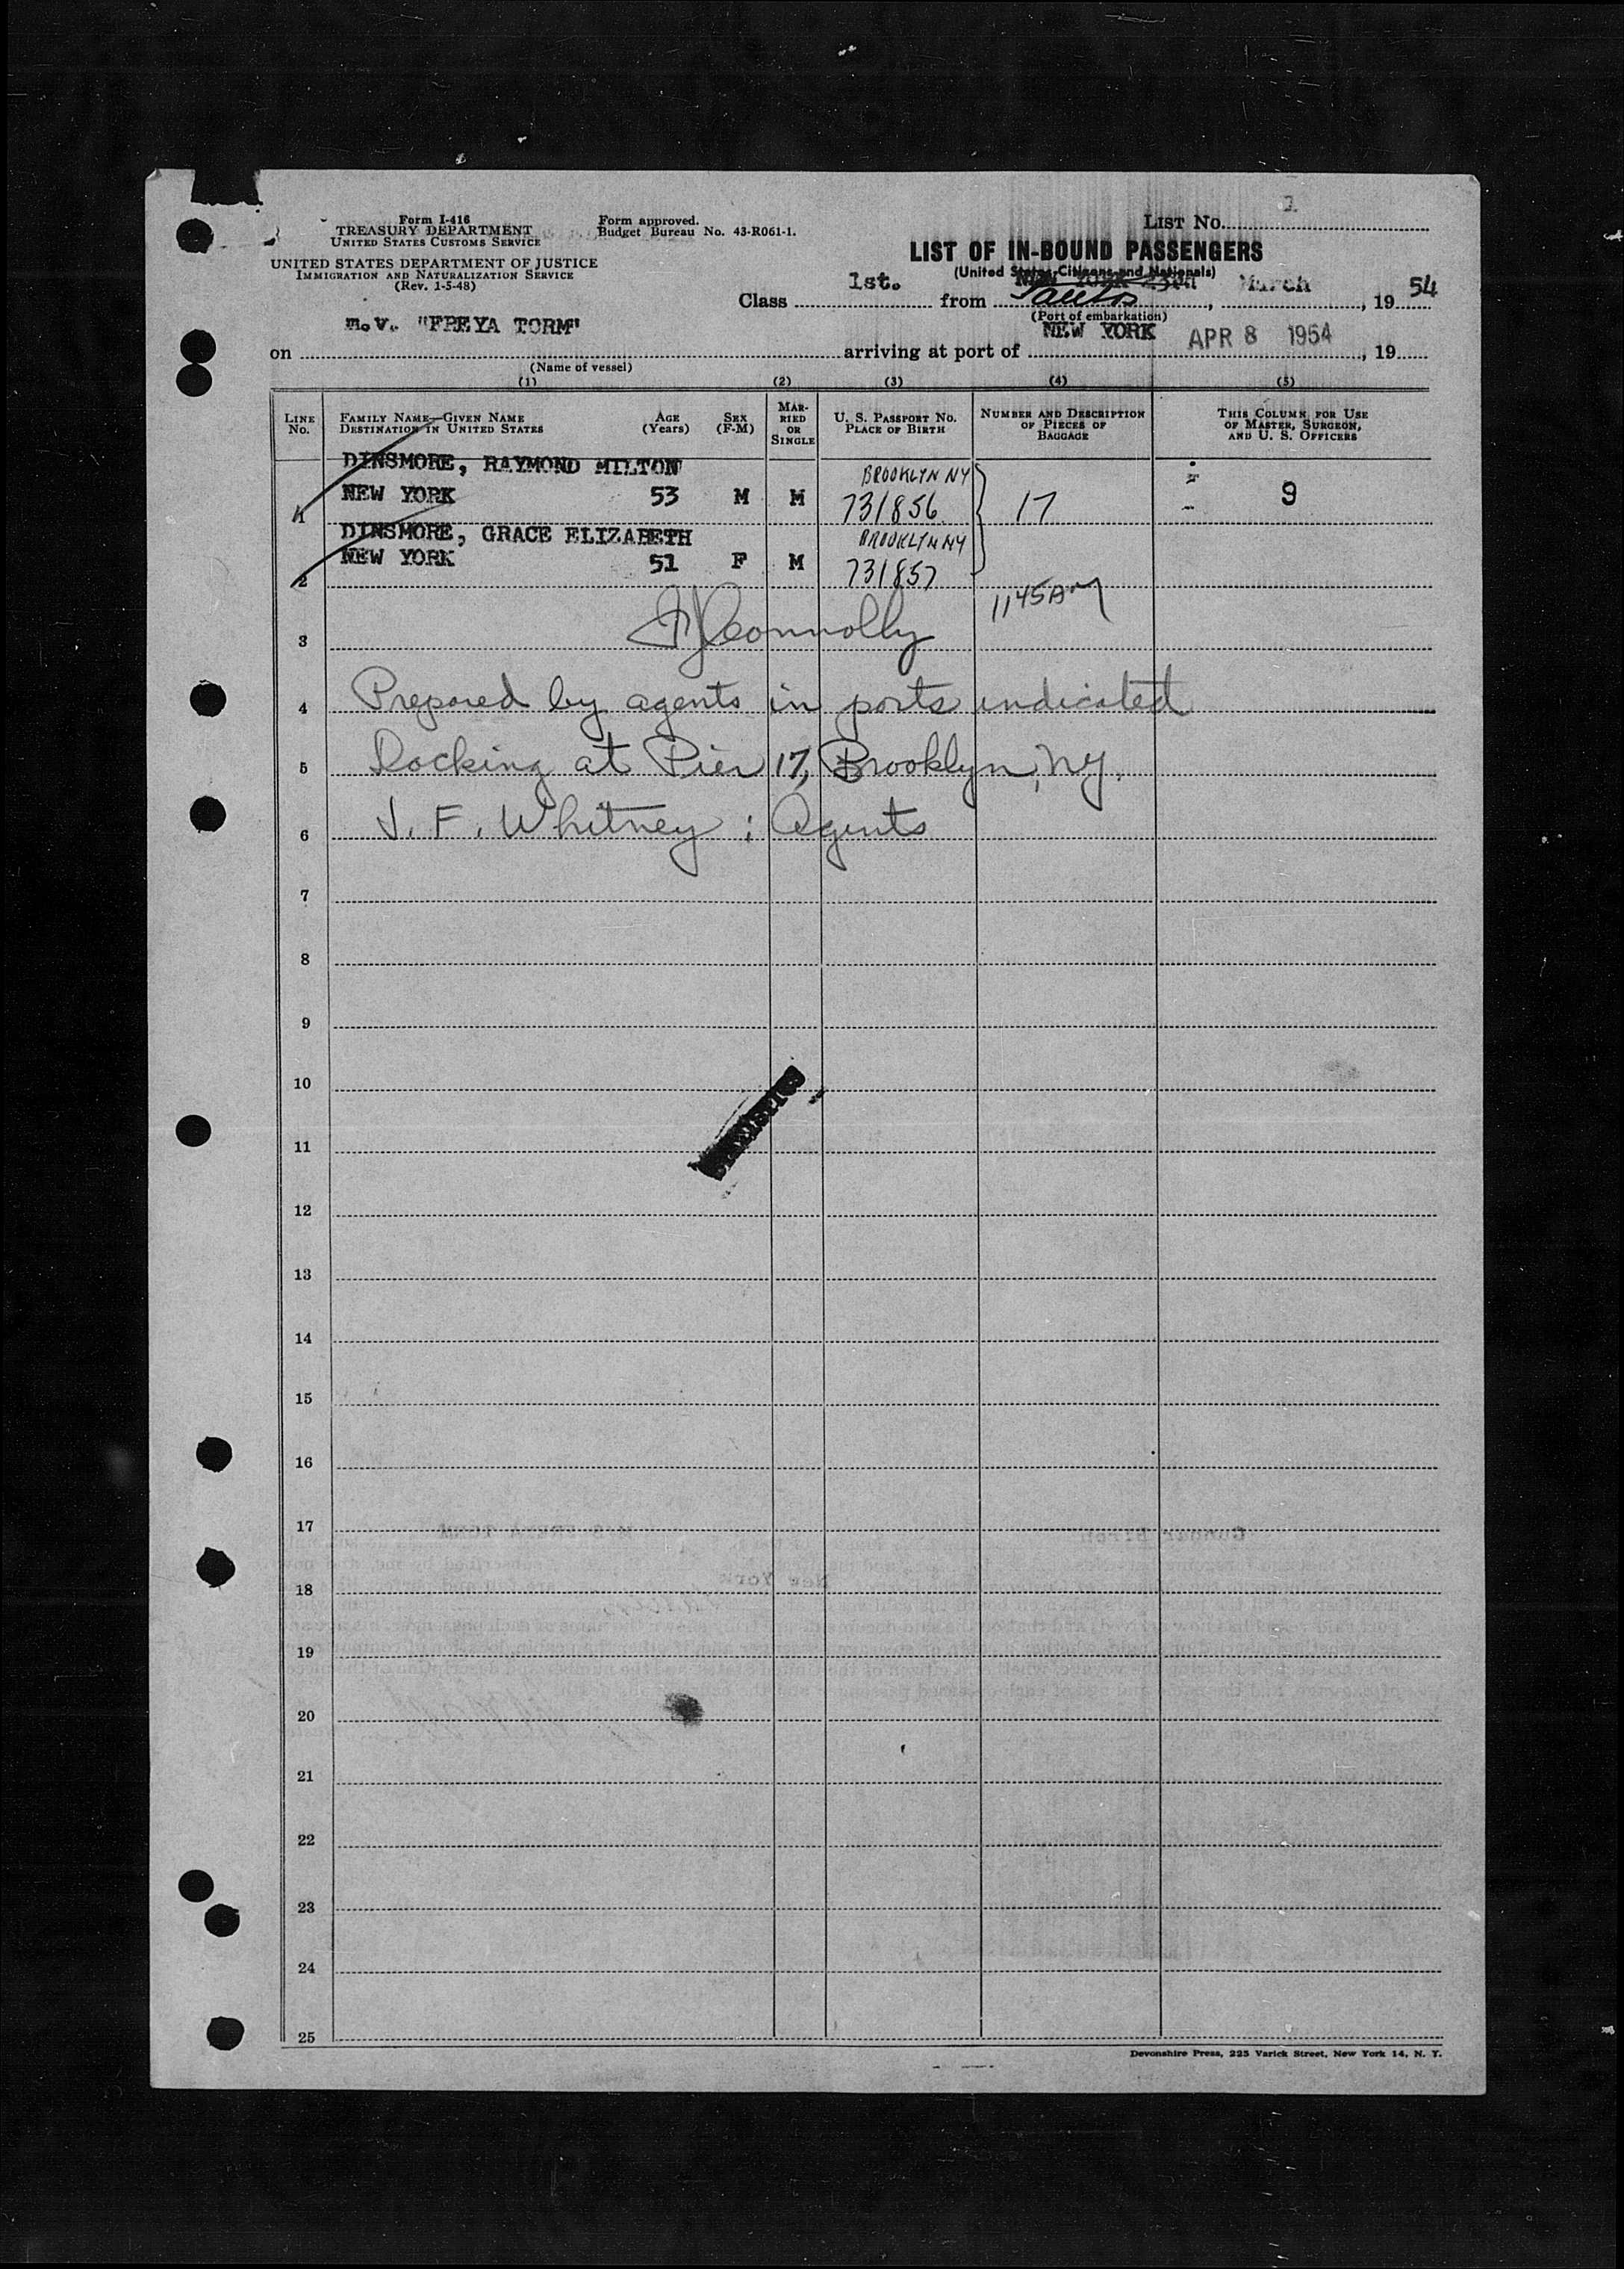 Form I-416
TREASURY DEPARTMENT
UNITED STATES CUSTOMS SERVICE
UNITED STATES DEPARTMENT OF JUSTICE
IMMIGRATION AND NATURALIZATION SERVICE
(Rev. 1-5-48)
Form approved.
Budget Bureau No. 43-R061-1.
LIST No.
LIST OF IN-BOUND PASSENGERS
(United States Citizens and Nationals)
Class 1st. from NEW YORK Santos, March, 19 54
(Port of embarkation)
on m.v. "FREYA TORM" arriving at port of NEW YORK APR 8 1954, 19
(Name of vessel)
(1) (2) (3) (4) (5)
LINE No. FAMILY NAME—GIVEN NAME DESTINATION IN UNITED STATES AGE (Years) SEX (F-M) MARRIED OR SINGLE U. S. PASSPORT No. PLACE OF BIRTH NUMBER AND DESCRIPTION OF PIECES OF BAGGAGE THIS COLUMN FOR USE OF MASTER, SURGEON, AND U. S. OFFICERS
DINSMORE, RAYMOND MILTON BROOKLYN NY
1 NEW YORK 53 M M 731856 17 9
DINSMORE, GRACE ELIZABETH BROOKLYN NY
2 NEW YORK 51 F M 731857
1145AM
3 Connolly
4 Prepared by agents in ports indicated
5 Docking at Pier 17, Brooklyn, NY.
6 J. F. Whitney ; Agents
7
8
9
10
11
12
13
14
15
16
17
18
19
20
21
22
23
24
25
Devonshire Press, 225 Varick Street, New York 14, N. Y.